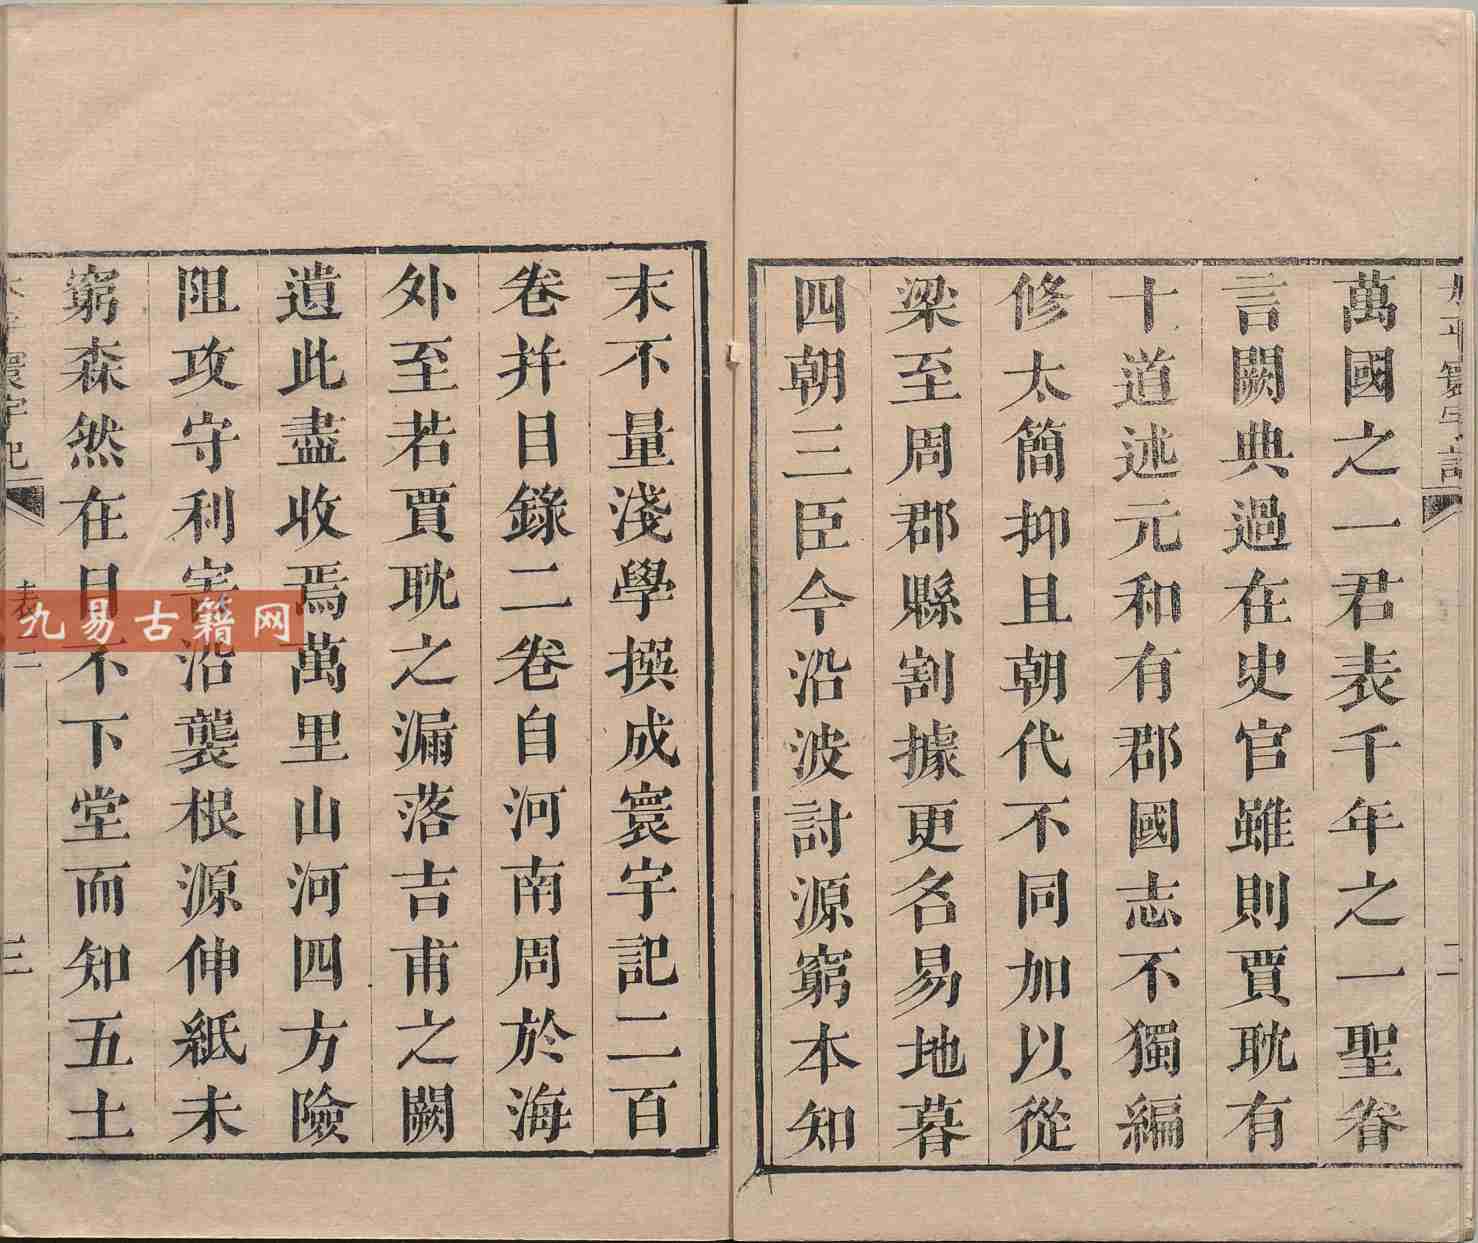 太平寰宇記
二
萬國之一君表千年之一聖眷
言闕典過在史官雖則賈耽有
十道述元和有郡國志不獨編
修太簡抑且朝代不同加以從
梁至周郡縣割據更名易地暮
四朝三臣今沿波討源窮本知
末不量淺學撰成寰宇記二百
卷并目錄二卷自河南周於海
外至若賈耽之漏落吉甫之闕
遺此盡收焉萬里山河四方險
阻攻守利害沿襲根源伸紙未
窮森然在目不下堂而知五土
太平寰宇記
表
三
九易古籍网